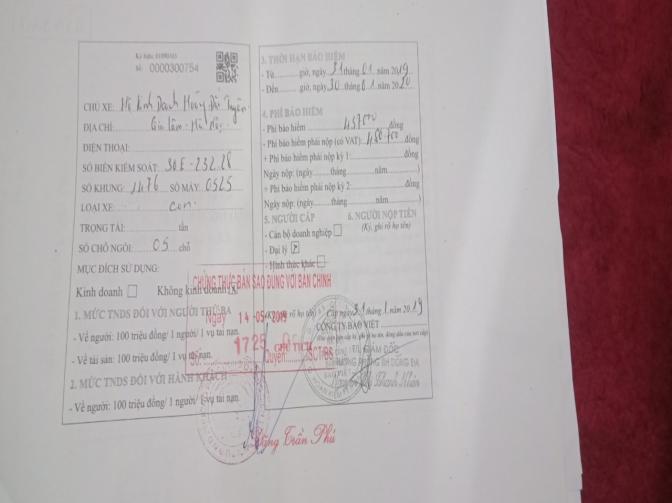 Số: 0000300754
CHỦ XE: Hộ Kinh Doanh Hoàng Thị
ĐỊA CHỈ: Gia Lâm - Hà Nội
ĐIỆN THOẠI:
SỐ BIỂN KIỂM SOÁT: 30E-232.28
SỐ KHUNG: 1476 SỐ MÁY: 0525
LOẠI XE: con
TRỌNG TẢI: tấn
SỐ CHỖ NGỒI: 05 chỗ
MỤC ĐÍCH SỬ DỤNG:
Kinh doanh Không kinh doanh
1. MỨC TNDS ĐỐI VỚI NGƯỜI THỨ BA
- Về người: 100 triệu đồng/ 1 người/ 1 vụ tai nạn.
- Về tài sản: 100 triệu đồng/ 1 vụ tai nạn.
2. MỨC TNDS ĐỐI VỚI HÀNH KHÁCH
- Về người: 100 triệu đồng/ 1 người/ 1 vụ tai nạn.
3. THỜI HẠN BẢO HIỂM
- Từ giờ, ngày 31 tháng 01 năm 2019
- Đến giờ, ngày 30 tháng 01 năm 2020
4. PHÍ BẢO HIỂM
- Phí bảo hiểm 437000 đồng
- Phí bảo hiểm phải nộp (có VAT): 480700 đồng
+ Phí bảo hiểm phải nộp kỳ 1: đồng
Ngày nộp: (ngày tháng năm )
+ Phí bảo hiểm phải nộp kỳ 2: đồng
Ngày nộp: (ngày tháng năm )
5. NGƯỜI CẤP 6. NGƯỜI NỘP TIỀN
- Cán bộ doanh nghiệp (Ký, ghi rõ họ tên)
- Đại lý
- Hình thức khác
Cấp ngày 31 tháng 1 năm 2019
CÔNG TY BẢO VIỆT
GIÁM ĐỐC
CHỨNG THỰC BẢN SAO ĐÚNG VỚI BẢN CHÍNH
Ngày 14-05-2019
Số 1725 Quyển SCT/BS
CHỦ TỊCH
Đặng Trần Phú